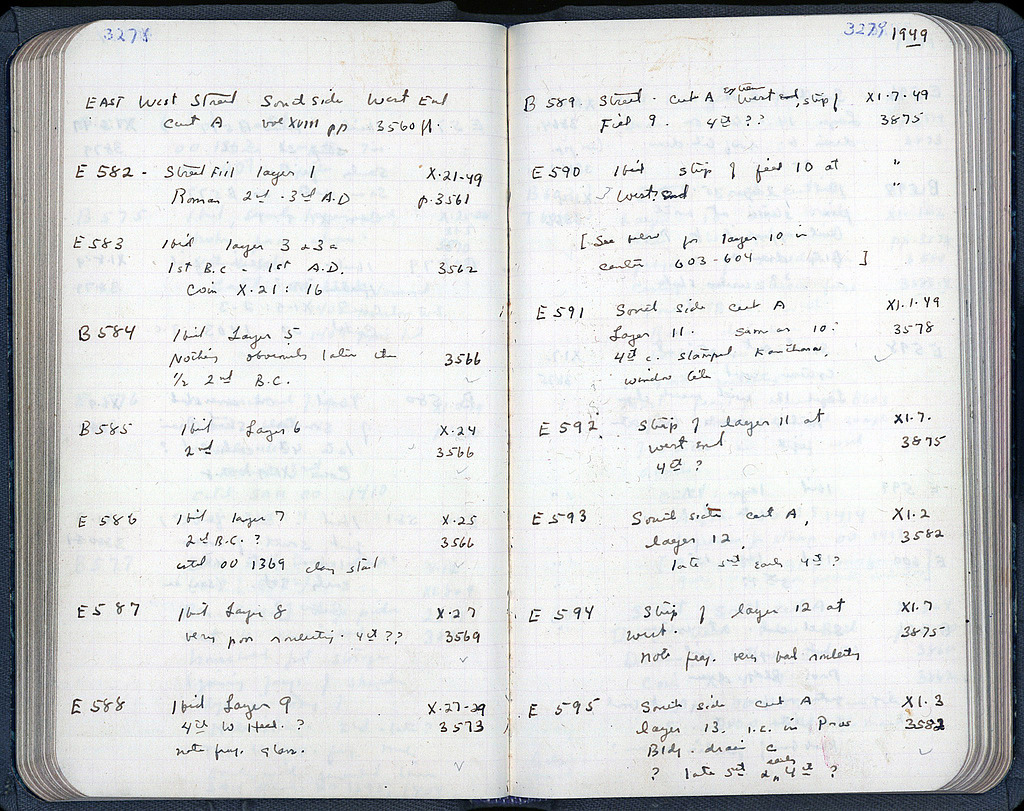 3278
EAST West Street South side West End
cut A vol XVIII pp 3560 ff.
E 582 - Street Fill layer 1 X-21-49
Roman 2nd - 3rd A.D p.3561
E 583 Ibid layer 3 + 3a
1st B.C - 1st A.D. 3562
Coin X.21:16
B 584 Ibid Layer 5
Nothing obviously later than 3566
1/2 2nd B.C.
B 585 Ibid Layer 6 X.24
2nd 3566
E 586 Ibid layer 7 X.25
2nd B.C. ? 3566
with OO 1369 clay
E 587 Ibid Layer 8 X.27
very poor 4th ?? 3569
E 588 Ibid Layer 9 X-27-29
4th w Heel. ? 3573
note frag. glass.
3279 1949
B 589 Street - cut A extreme West end, strip of X1-7-49
Fill 9. 4th ?? 3875
E 590 Ibid strip of 10 at "
West end
[See below for layer 10 in
603-604 ]
E 591 South side cut A X1-1-49
Layer 11. Same as 10: 3578
4th c. stamped Kantharos,
window tile
E 592 Strip of layer 11 at X1.7.
west end 3875
4th ?
E 593 South side cut A, X1.2
layer 12, 3582
late 5th early 4th ?
E 594 Strip of layer 12 at X1.7
West. 3875
note frag. very bad
E 595 South side cut A X1.3
layer 13. i.e. in Pros 3582
Bldg. drain c
? late 5th or early 4th ?